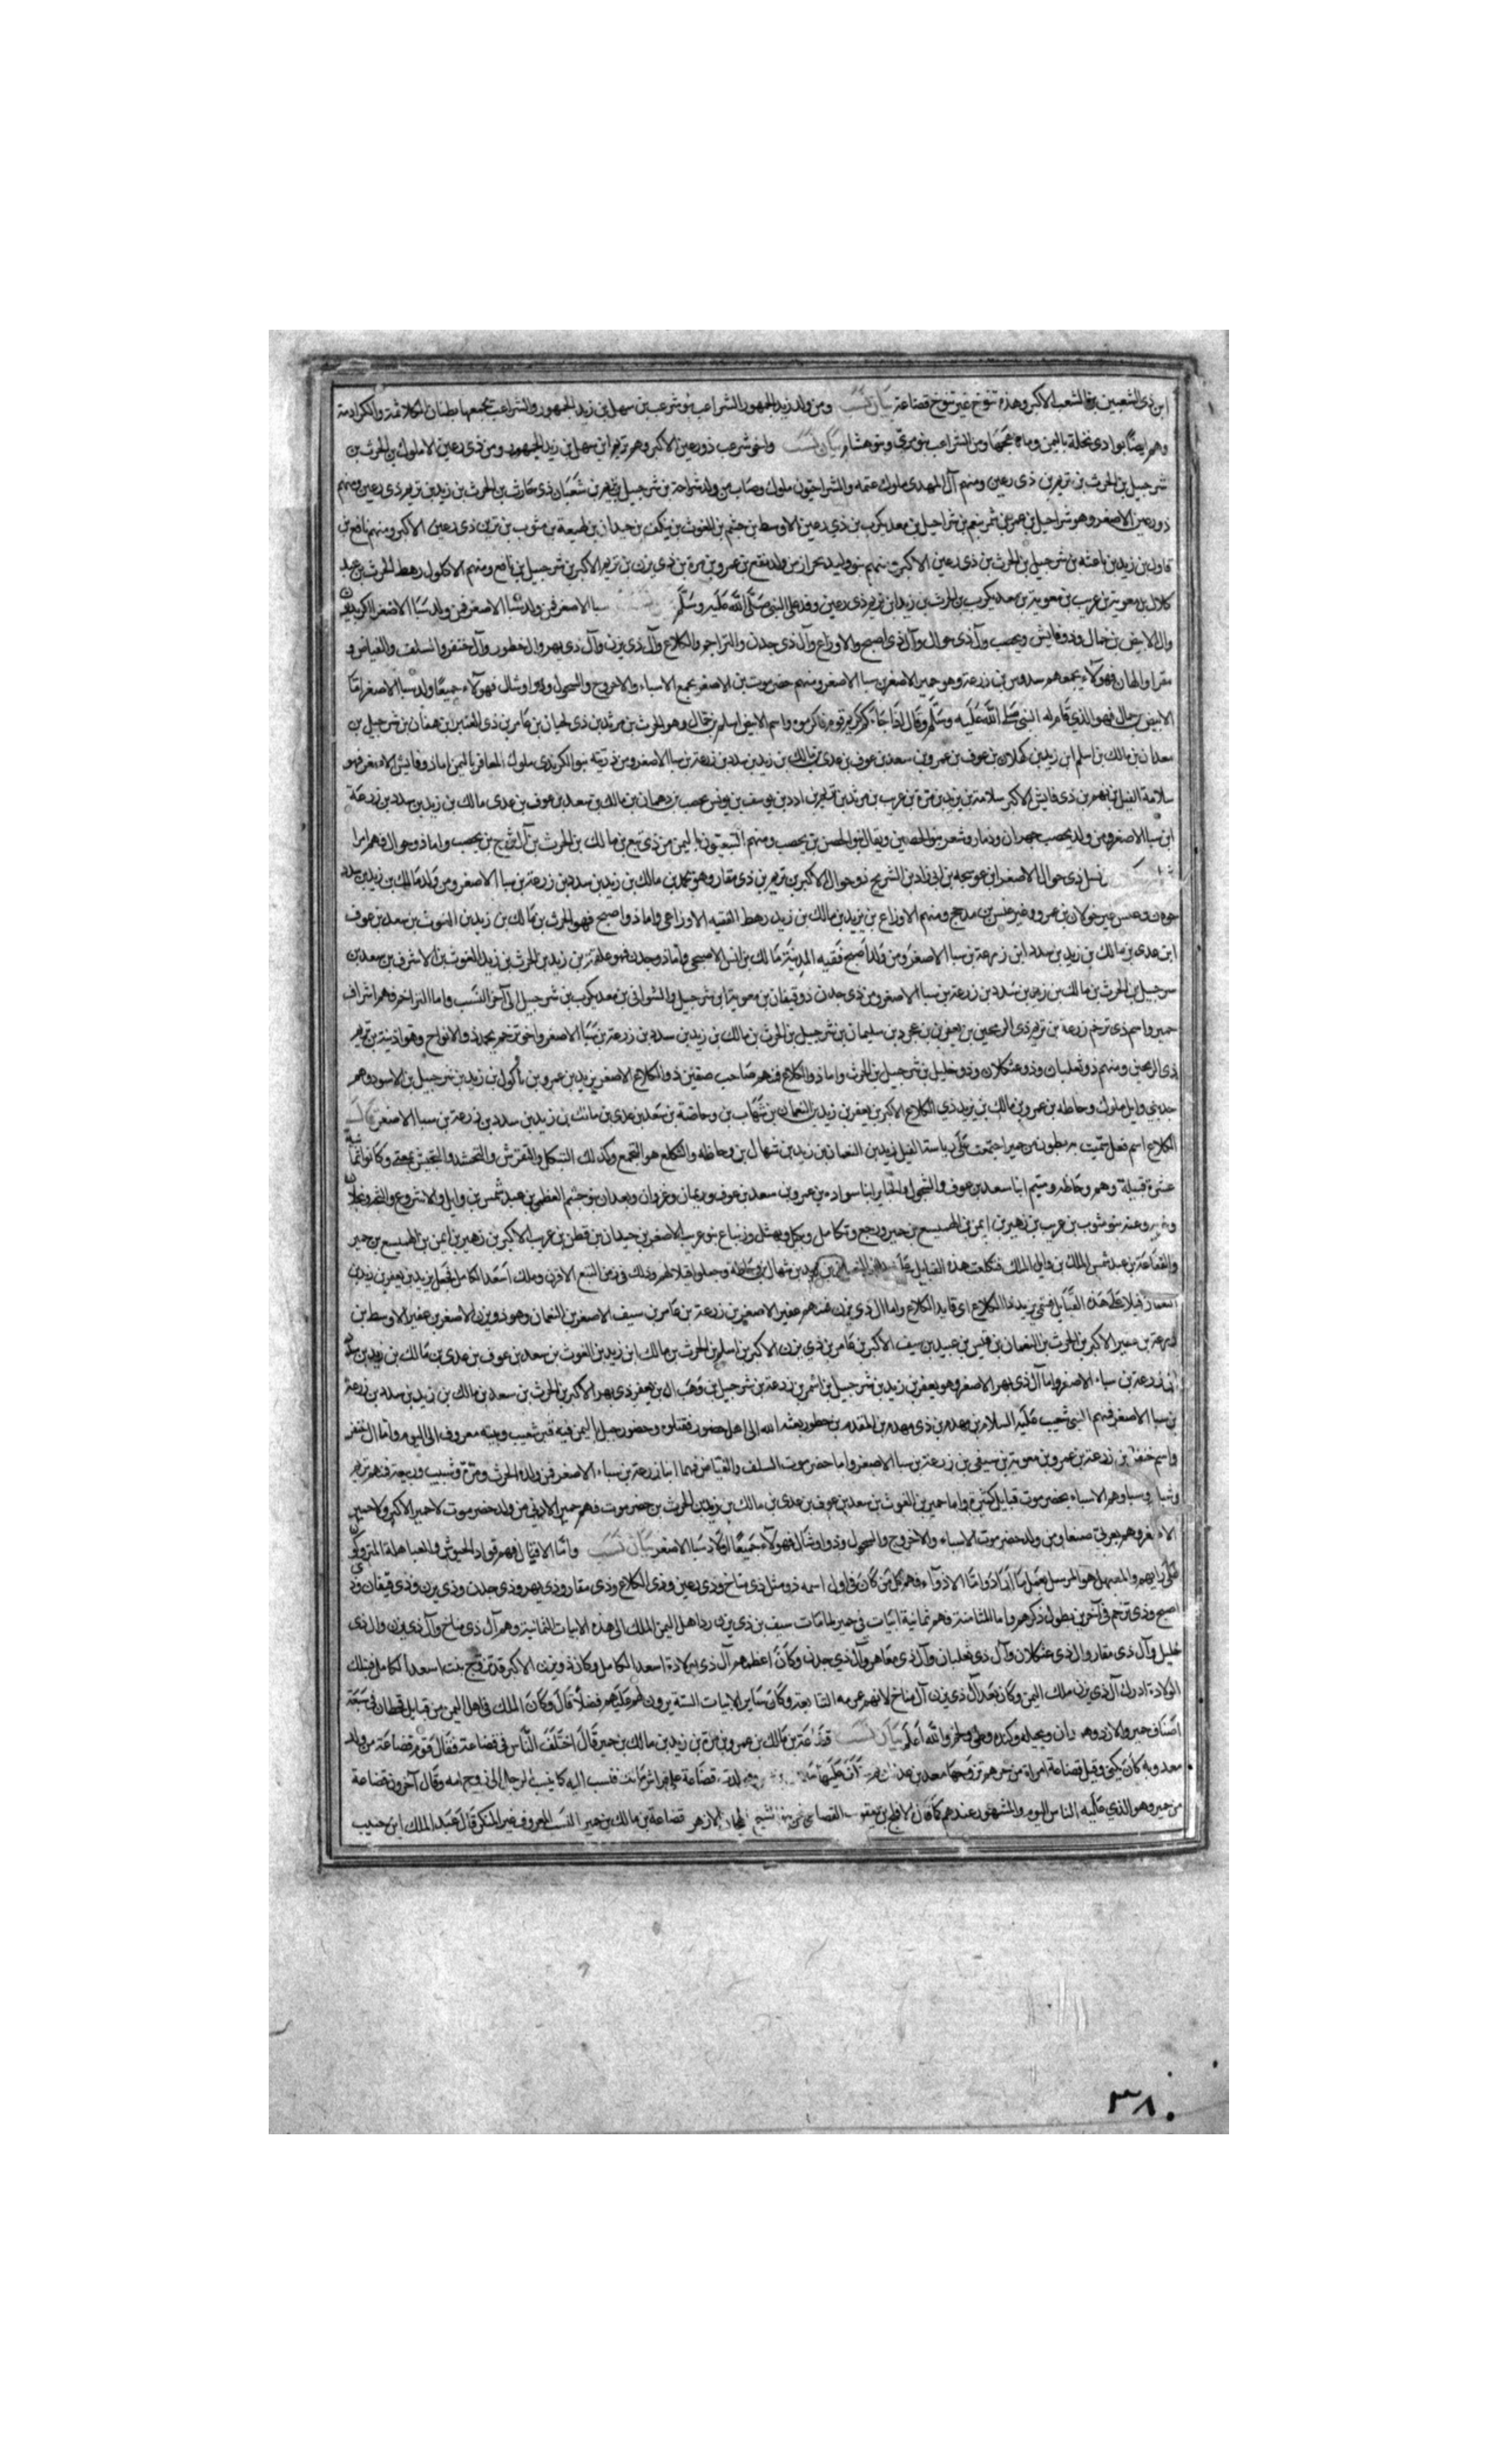 ابن ذي الشعبين من الشعب الاكبر وهذه تنوخ غير تنوخ قضاعة بيان نسب ومن ولد زيد الجمهور الشراعب بنو شرعب بن سهل بن زيد الجمهور والشراعب تجمعها بطنان
وهم ايضا بوادي نخلة باليمن وما ومن الشراعب بنو سري وبنو هشام بيان نسب واخو شرعب ذو رعين الاكبر وهو تريم ابن سهل بن زيد الجمهور ومن ذي رعين الاملوك بن الحرث بن
شرحبيل بن الحرث بن تريم بن ذي رعين ومنهم آل المهدي ملوك عتمه والشراحيون ملوك وصاب من ولد شراحة بن شرحبيل بن تريم بن شعبان ذي حارث بن الحرث بن زيد بن تريم ذي رعين ومنهم
ذو رعين الاصغر وهو شراحيل بن عمرو بن شمر ينعم بن شراحيل بن معدي كرب بن ذي رعين الاوسط بن جشم بن الغوث بن يكف بن حيدان بن لهيعة بن مثوب بن تريم ذي رعين الاكبر ومنهم نافع بن
بن زيد بن ناعته بن شرحبيل بن الحرث بن ذي رعين الاكبر منهم بنو وليد بحراز من ولد نفع بن عمرو بن مرة بن ذي يزن بن تريم الاكبر بن شرحبيل بن نافع ومنهم الاكلول رهط الحرث بن عبد
كلال بن معوية بن عريب بن معوية بن معدي كرب بن الحرث بن زيد ابن تريم ذي رعين وفد على النبي صلى الله عليه وسلم سبا الاصغر فمن ولد سبا الاصغر فمن ولد سبا الاصغر
وال الابيض بن حمال وذو فايش ويحصب وآل ذي حوال وآل ذي اصبح والاوزاع وآل ذي جدن والتراجم والكلاع وآل ذي يزن وآل ذي يهر وال خطور وآل خنفر والسلف والغياض و
مقرا والهان فهؤلاء يجمعهم سدد بن زرعة وهو حمير الاصغر بن سبا الاصغر ومنهم حضرموت بن الاصغر يجمع الاسباء والاخروج والسحول وذو اوشال فهؤلاء جميعا ولد سبا الاصغر اما
الابيض بن حمال فهو الذي قام له النبي صلى الله عليه وسلم وقال اذا جاءكم كريم قوم فاكرموه واسم الابيض اسلم بن حمال وهو الحرث بن مرثد بن ذي لحيان بن عامر بن ذي العنبر ابن همان بن شرحبيل بن
معدان بن مالك بن اسلم ابن زيد بن كهلان بن عوف بن عمرو بن سعد بن عوف بن عدي بن مالك بن زيد بن سدد بن زرعة بن سبا الاصغر ومن ذريته بنو الكرندي ملوك المعافر باليمن واما ذو فايش الاصغر فهو
سلامة القيل بن يهر بن ذي فايش الاكبر سلامة بن يزيد بن مرة بن عريب بن مرثد بن تريم بن ادد بن يوسف بن يونس يحصب بن دهمان بن مالك بن سعد بن عوف بن عدي مالك بن زيد بن سدد بن زرعة
ابن سبا الاصغر ومن ولد يحصب جهران وذمار وشعر بنو الحصين ويقال بنو الحصن بن يحصب ومنهم التبعيون باليمن من ذي تبع بن مالك بن الحرث بن آل شرح بن يحصب واما ذو حوال فهم امرا
نسل ذي حوال الاصغر ابن عوسجه بن ابي زاد بن الشريح ذو حوال الاكبر بن تريم بن ذي مقار وهو محمد بن مالك بن زيد بن سدد بن زرعة بن سبا الاصغر ومن ولد مالك بن زيد بن سدد
خولان وعنس غير خولان بن عمرو وغير عنس بن مذحج ومنهم الاوزاع بن يزيد بن مالك بن زيد رهط الفقيه الاوزاعي واما ذو اصبح فهو الحرث بن مالك بن زيد بن الغوث بن سعد بن عوف
ابن عدي بن مالك بن زيد بن سدد ابن زرعة بن سبا الاصغر ومن ولد اصبح فقيه المدينة مالك بن انس الاصبحي واما ذو جدن فهو علقمة بن زيد بن الحرث بن زيد الغوث بن الاشرف بن سعد بن
شرحبيل بن الحرث بن مالك بن زيد بن سدد بن زرعة بن سبا الاصغر ومن ذي جدن ذو قيفان بن معوية ابن شرحبيل والشواني بن معدي كرب بن شرحبيل الى آخر النسب واما التراخم فهم اشراف
حمير واسم ذي ترخم زرعة بن تريم ذي الرمحين بن يعفر بن عجرد بن سليمان بن شرحبيل بن الحرث بن مالك بن زيد بن سدد بن زرعة بن سبا الاصغر واخو ترخم يحمد ذو الانواح وهو اذينة بن تريم
ذي الرمحين ومنهم ذو ثعلبان وذو عثكلان وذو خليل بن شرحبيل بن الحرث واما ذو الكلاع فمنهم صاحب صفين ذو الكلاع الاصغر يزيد بن عمرو بن ناكول بن زيد بن شرحبيل بن الاسود وهم
وايل ملوك وحاظه بن عمرو بن مالك بن يزيد ذي الكلاع الاكبر بن يعفر بن زيد بن النعمان بن شهاب بن وحاضة بن سعد بن عدي بن مالك بن زيد بن سدد بن زرعة بن سبا الاصغر
الكلاع اسم فعل سميت به بطون من حمير اجتمعت على رياسة القيل يزيد بن النعمان بن زيد بن شهال بن وحاظه والتكلع هو التجمع وكذلك التبكل والتقرش والتحشد والتحبش بمعنى وكانوا
عشرة قبيلة وهم وحاظه وميتم ابنا سعد بن عوف والسحول والخباير ابنا سوادة بن عمرو بن سعد بن عوف وريمان وعروان وبعدان بنو جشم العظمى بن عبد شمس بن وايل والاشروع
وعنه بنو مثوب بن عريب بن زهير بن ايمن بن الهميسع بن حمير ورجع وتكامل وبكل وبهيل وزنباع بنو عريب الاصغر بن حيدان بن قطن بن عريب الاكبر بن زهير بن ايمن بن الهميسع بن حمير
والقفاعة بن عبد شمس الملك بن وايل الملك فتكلعت هذه القبايل على النعمان بن زيد بن شهال بن وحاظة وجعلوا قيلا لهم وذلك في زمن التبع الاقرن وملك اسعد الكامل فجعل يزيد بن يعفر بن زيد بن
النعمان قيلا على هذه القبايل فسمي يزيد ذا الكلاع اي قايد الكلاع واما ال ذي يزن فمنهم عفير الاصغر بن زرعة بن عامر بن سيف الاصغر بن النعمان وهو ذو يزن الاصغر بن عفير الاوسط بن
زرعة بن عفير الاكبر بن الحرث بن النعمان بن قيس بن عبيد بن سيف الاكبر بن عامر بن ذي يزن الاكبر بن اسلم بن الحرث بن مالك ابن زيد بن الغوث بن سعد بن عوف بن عدي بن مالك بن زيد بن سدد
بن زرعة بن سباء الاصغر واما آل ذي يهر الاصغر وهو يعفر بن زيد بن شرحبيل بن اشمر بن زرعة بن شرحبيل بن وهب ال بن يعفر ذي يهر الاكبر بن الحرث بن سعد بن مالك بن زيد بن سدد بن زرعة
بن سبا الاصغر فمنهم النبي شعيب عليه السلام بن مهدم بن ذي مهدم بن المقدم بن حضور بعثه الله الى اهل حضور فقتلوه وحضور جبل اليمن فيه قبر شعيب وبيته معروف الى اليوم واما ال خنفر
واسم خنفر بن زرعة بن عمرو بن معوية بن سيفي بن زرعة بن سبا الاصغر واما حضرموت السلف والغياض فهما ابنا زرعة بن سباء الاصغر فمن ولده الحرث ومرة وشبيب وربيعة
وشبا وسبا وهم الاسباء بحضرموت قبايل كثيرة واما حمير بن الغوث بن سعد بن عوف بن عدي بن مالك بن زيد بن الحرث بن حضرموت فهم حمير الادنى من ولد حضرموت لا حمير الاكبر ولا حمير
الاصغر وهم بعر بي صنعا ومن ولد حضرموت الاسباء والاخروج والسحول وذو اوشال فهؤلاء جميعا اولاد سبا الاصغر بيان نسب واما الاقيال فهم قواد الجيوش والعباهلة المتروكو
على رايهم والمعبهل هو المرسل يعمل ما اراد واما الاذواء فهم كل من كان في اول اسمه ذو مثل ذي مناخ وذي رعين وذي الكلاع وذي مقار وذي يهر وذي جدن وذي يزن وذي قيفان وذي
اصبح وذي ترخم في آخرين يطول ذكرهم واما المثامنة فهم ثمانية ابيات في حمير لما مات سيف بن ذي يزن رد اهل اليمن الملك الى هذه الابيات الثمانية وهم آل ذي مناخ وآل ذي يزن وال ذي
خليل وآل ذي مقار وال ذي عثكلان وآل ذي ثعلبان وآل ذي معاهر وآل ذي جدن وكان اعظمهم آل ذي لولادة اسعد الكامل وكان ذو يزن الاكبر قد تزوج بنت اسعد الكامل فبتلك
الولادة ادرك آل ذي يزن ملك اليمن وكان بعد آل ذي يزن آل مناخ لانهم عمومه التبابعة وكان ساير الابيات الستة يرون لهم عليهم فضلا قال وكان الملك في اهل اليمن من قبايل قحطان في سبعة
اصناف حمير والازد وهمدان وبجيله وكنده وطي ولخم والله اعلم بيان نسب قضاعة بن مالك بن عمرو بن مرة بن زيد بن مالك بن حمير قال اختلف الناس في قضاعة فقال قوم قضاعة من ولد
معد وبه كان يكنى وقيل قضاعة امراة من جرهم تزوجها معد بن عدنان قضاعة على فراش فنسب اليه كما ينسب الرجل الى زوج امه وقال آخرون قضاعة
من حمير وهو الذي عليه الناس اليوم والمشهور عندهم كما قال الافلح بن يعقوب القضاعي نحن بنو الشيخ الهجان الازهر قضاعة بن مالك بن حمير النسب المعروف غير المنكر قال عبد الملك ابن حبيب
٣٨٠